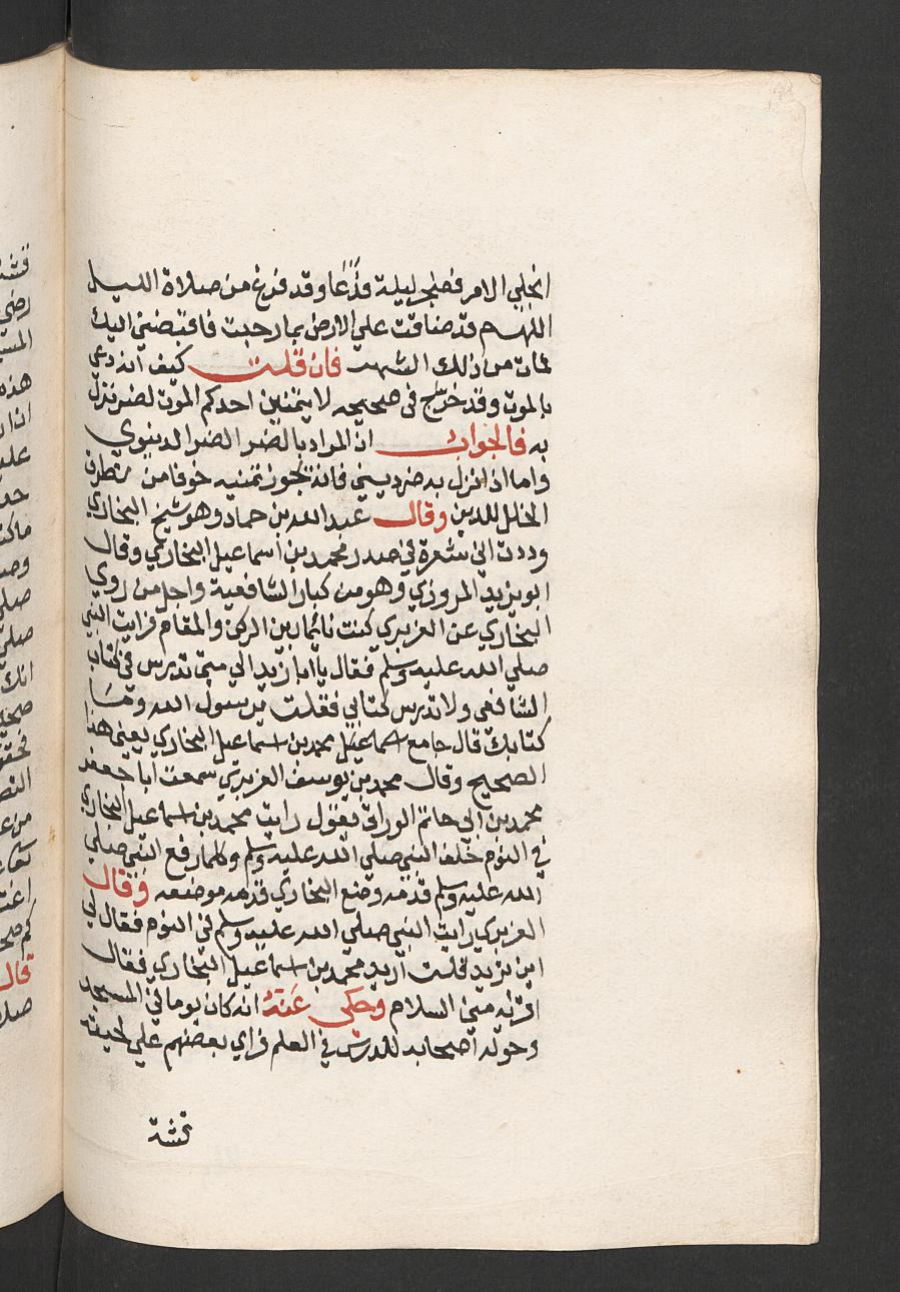 انجلي الامر فضجر ليلة ودعا وقد فرغ من صلاة الليل
اللهم قد ضاقت علي الارض بما رحبت فاقبضني اليك
فمات من ذلك الشهر فان قلت كيف انه دعى
بالموت وقد خرج في صحيحه لا يتمنين احدكم الموت لضر نزل
به فالجواب ان المراد بالضر الضر الدنيوي
واما اذا نزل به ضر ديني فانه يجوز تمنيه خوفا من تطرق
الخلل للدين وقال عبد الله بن حماد وهو شيخ البخاري
وددت اني شعرة في صدر محمد بن اسماعيل البخاري وقال
ابو يزيد المروزي وهو من كبار الشافعية واجل من روي
البخاري عن الفربري كنت نائما بين الركن والمقام فرايت النبي
صلي الله عليه وسلم فقال يا ابا زيد الي متى تدرس في كتاب
الشافعي ولا تدرس كتابي فقلت يرسول الله وما
كتابك قال جامع اسماعيل محمد بن اسماعيل البخاري يعني هذا
الصحيح وقال محمد بن يوسف الفربري سمعت ابا جعفر
محمد بن ابي حاتم الوراق يقول رايت محمد بن اسماعيل البخاري
في النوم خلف النبي صلي الله عليه وسلم وكلما رفع النبي صلي
الله عليه وسلم قدمه وضع البخاري قدمه موضعه وقال
الفربري رايت النبي صلي الله عليه وسلم في النوم فقال لي
اين تريد قلت اريد محمد بن اسماعيل البخاري فقال
اقرئه مني السلام وحكى عنه انه كان يوما في المسجد
وحوله اصحابه للدرس في العلم فراي بعضهم علي لحيته
قشة